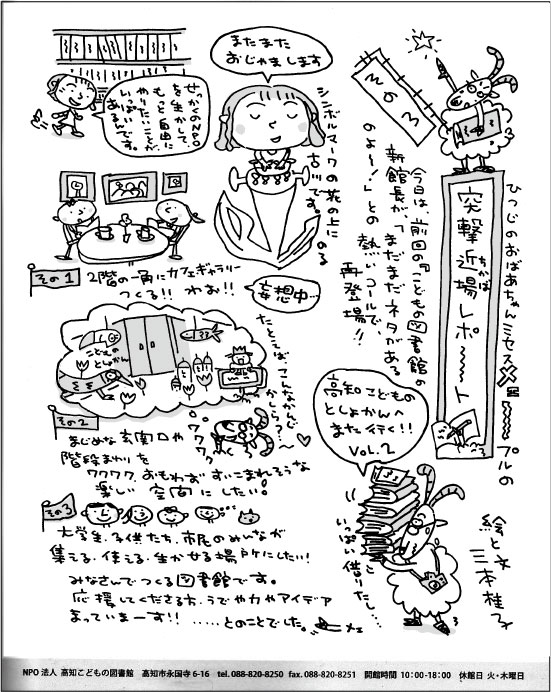 その3
ひつじのおばあちゃんミセスメェ〜〜プルの
突撃近場レポ〜〜ト
ちかば
高知こどもの
としょかんへ
また行く!!
VOL.2
絵と文
三本桂子
今日は、前回の「こどもの図書館の
新館長が、「まだまだネタがある
のよ〜!」との熱いコールで
再登場!!
またまた
おじゃまします
シンボルマークの花の上にのる
古川です。
せっかくのNPO
を生かして、
もっと自由に
やりたいことが
いっぱい
あるんです。
その1
2階の一角にカフェギャラリー
つくる!! わお!!
妄想中…
たとえば、こんなかんじ
かしら?…〜♡
こどもの
としょかん
その2
まじめな玄関口や
階段まわりを
ワクワク、おもわずすいこまれそうな
楽しい空間にしたい。
ワクワク
その3
大学生、子供たち、市民のみんなが
集える・使える・生かせる場所にしたい!
みなさんでつくる図書館です。
応援してくださる方、うでや力やアイデア
まっていまーす!! ……とのことでした。
いっぱい借りたし…
NPO法人 高知こどもの図書館 高知市永国寺6-16 tel.088-820-8250 fax.088-820-8251 開館時間 10:00-18:00 休館日 火・木曜日